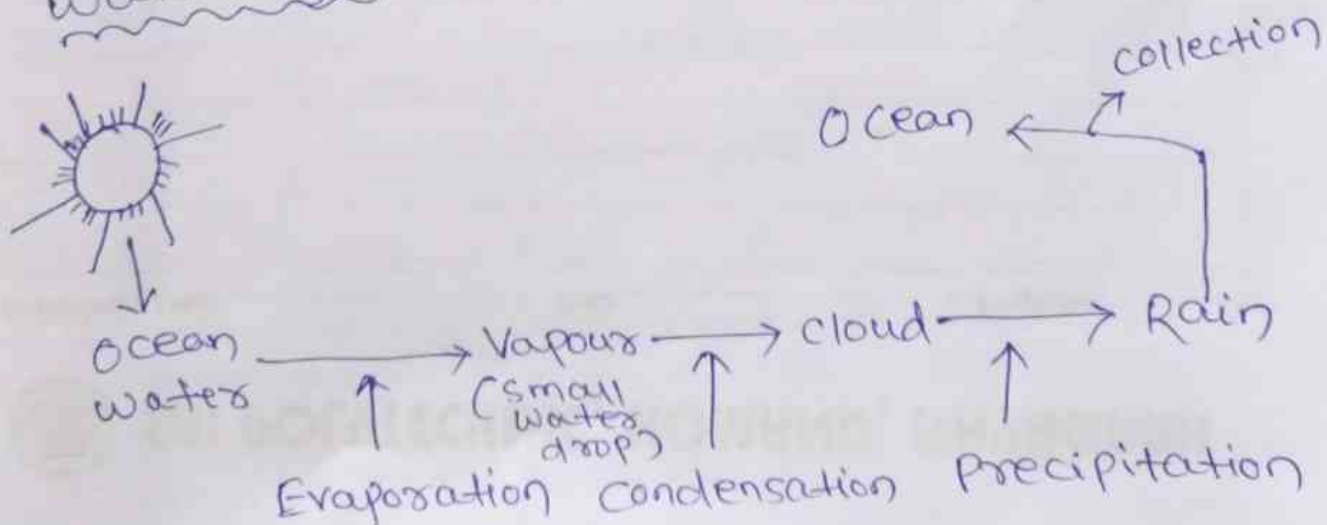 collection
Ocean
Ocean
water
Vapour
(small
water
drop)
cloud
Rain
Evaporation
condensation
Precipitation